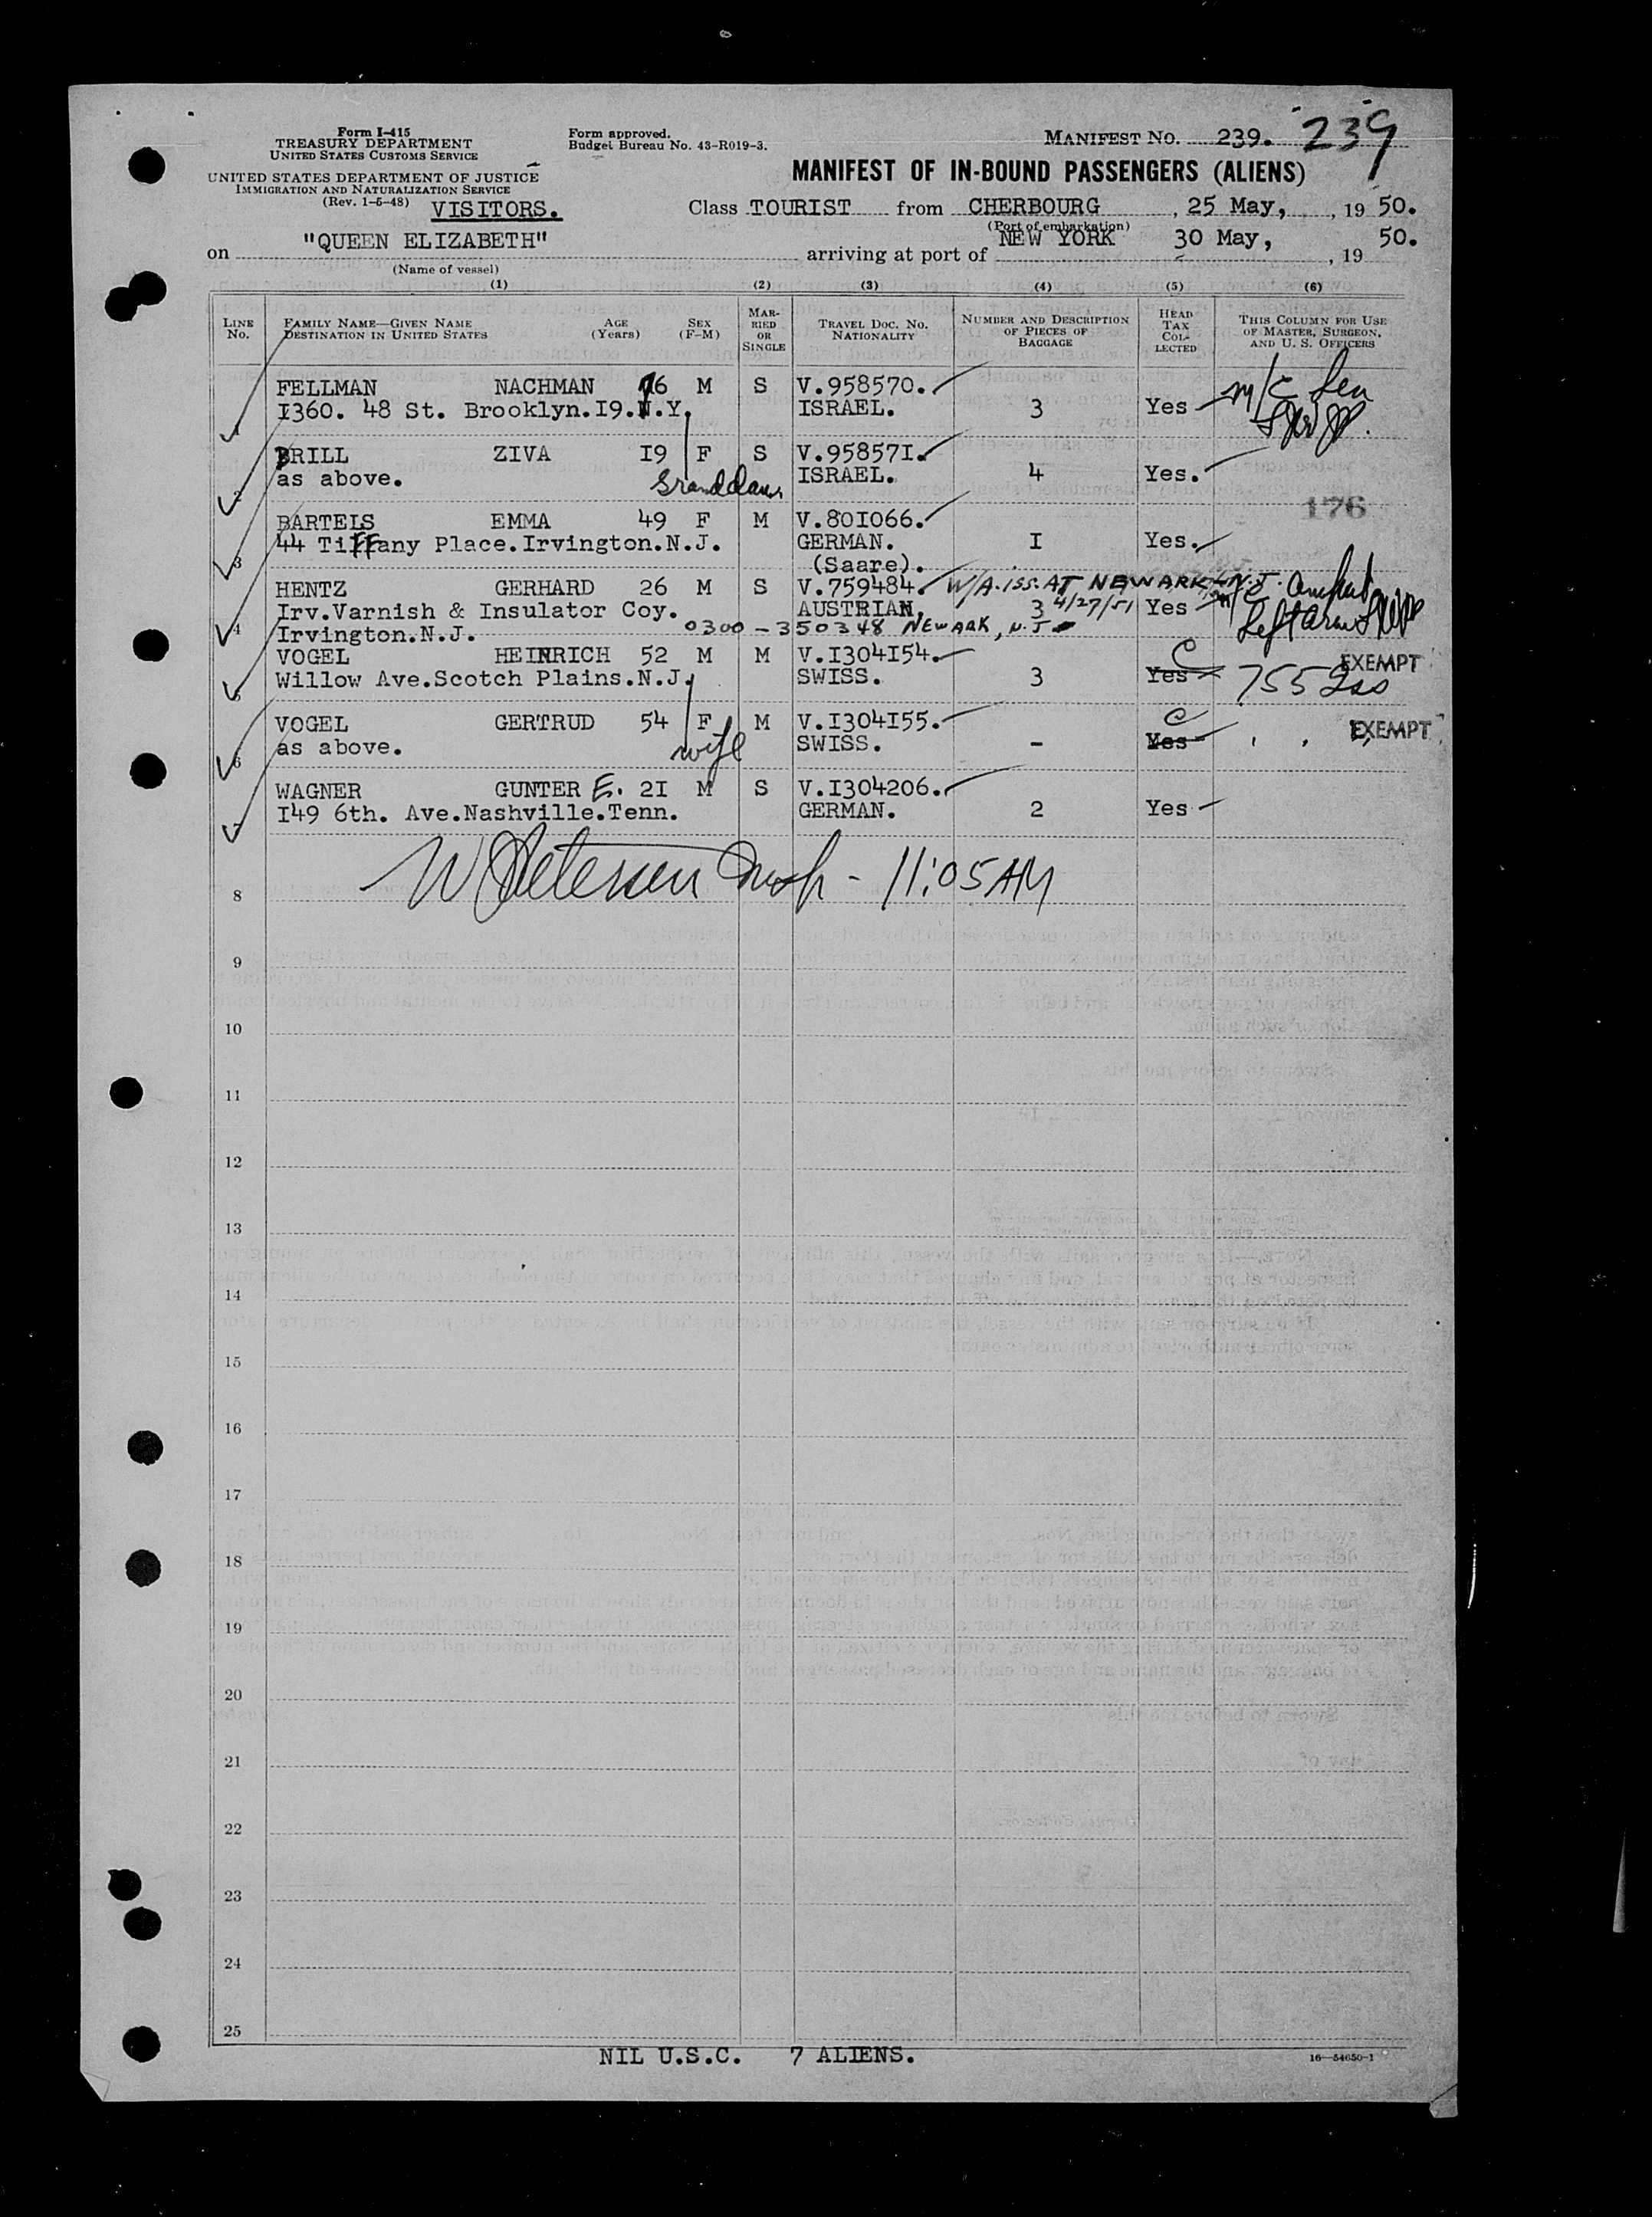 Form I-415
TREASURY DEPARTMENT
UNITED STATES CUSTOMS SERVICE
UNITED STATES DEPARTMENT OF JUSTICE
IMMIGRATION AND NATURALIZATION SERVICE
(Rev. 1-5-48) VISITORS.
Form approved.
Budget Bureau No. 43-R019-3.
MANIFEST NO. 239. 239
MANIFEST OF IN-BOUND PASSENGERS (ALIENS)
Class TOURIST from CHERBOURG, 25 May, , 19 50.
(Port of embarkation)
on "QUEEN ELIZABETH" arriving at port of NEW YORK 30 May, , 19 50.
(Name of vessel)
(1) (2) (3) (4) (5) (6)
LINE NO. FAMILY NAME—GIVEN NAME DESTINATION IN UNITED STATES AGE (Years) SEX (F-M) MARRIED OR SINGLE TRAVEL DOC. NO. NATIONALITY NUMBER AND DESCRIPTION OF PIECES OF BAGGAGE HEAD TAX COLLECTED THIS COLUMN FOR USE OF MASTER, SURGEON, AND U. S. OFFICERS
FELLMAN NACHMAN 76 M S V.958570.
1 I360. 48 St. Brooklyn.I9.N.Y. ISRAEL. 3 Yes m/c
BRILL ZIVA I9 F S V.95857I.
2 as above. Granddau ISRAEL. 4 Yes.
176
BARTELS EMMA 49 F M V.80I066.
44 Tiffany Place.Irvington.N.J. GERMAN. I Yes.
3 (Saare).
HENTZ GERHARD 26 M S V.759484. W/A. ISS. AT NEWARK, N.J.
4 Irv.Varnish & Insulator Coy. AUSTRIAN. 3 4/27/51 Yes Left arm
Irvington.N.J. 0300-350348 NEWARK, N.J.
VOGEL HEINRICH 52 M M V.I304I54. C EXEMPT
5 Willow Ave.Scotch Plains.N.J. SWISS. 3 Yes 755
VOGEL GERTRUD 54 F M V.I304I55. C EXEMPT
6 as above. wife SWISS. - Yes
WAGNER GUNTER E. 2I M S V.I304206.
I49 6th. Ave.Nashville.Tenn. GERMAN. 2 Yes
11:05 AM
8
9
10
11
12
13
14
15
16
17
18
19
20
21
22
23
24
25
NIL U.S.C. 7 ALIENS.
16—54650-1